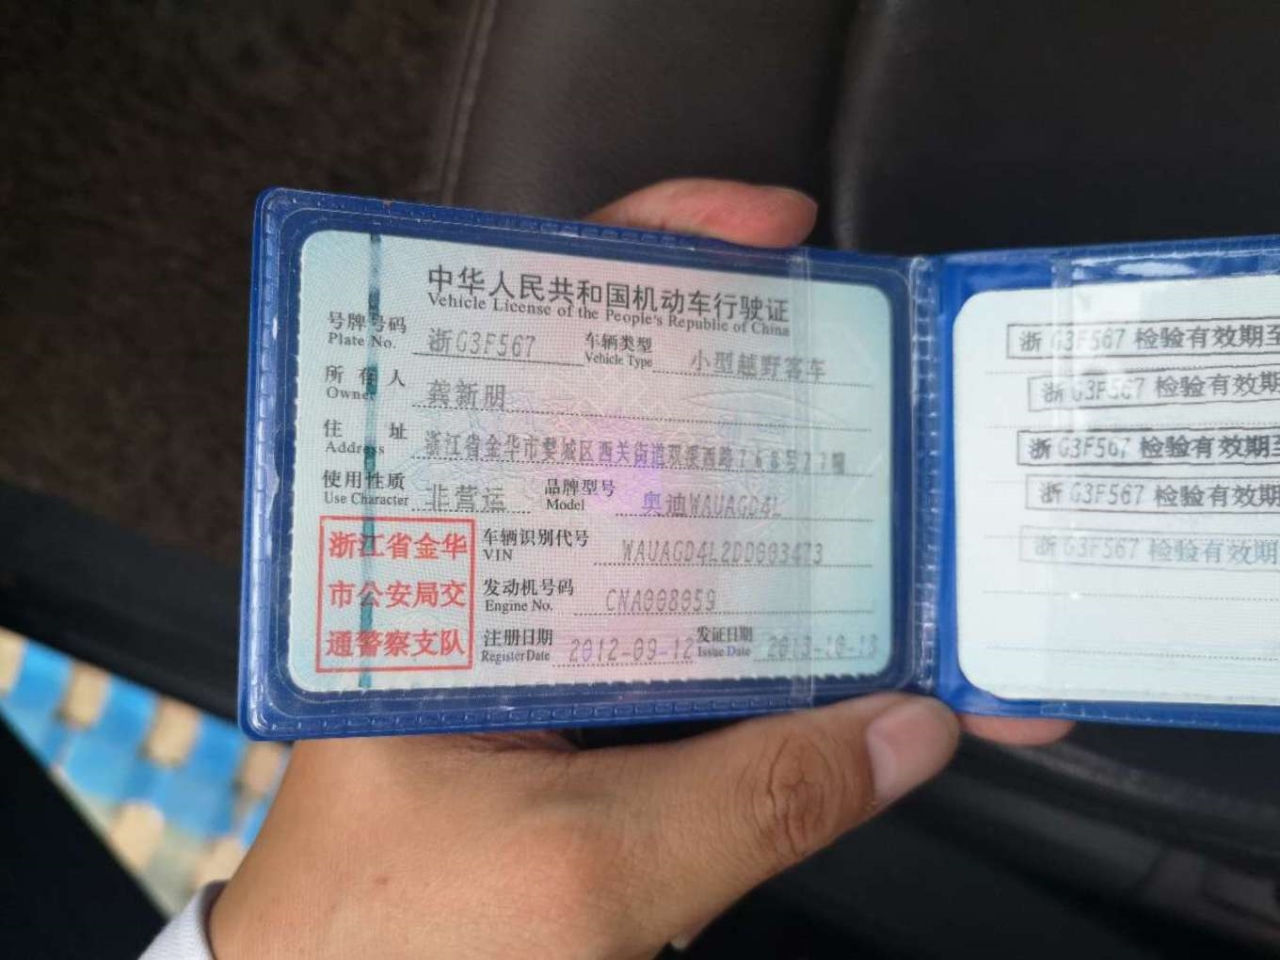 中华人民共和国机动车行驶证
Vehicle License of the People's Republic of China
号牌号码 浙G3F567 车辆类型 小型越野客车
Plate No. Vehicle Type
所有人 龚新朋
Owner
住址 浙江省金华市婺城区西关街道双溪西路
Address
使用性质 非营运 品牌型号 奥迪WAUAGD4L
Use Character Model
浙江省金华
市公安局交
通警察支队
车辆识别代号 WAUAGD4L2DD003473
VIN
发动机号码 CNA008059
Engine No.
注册日期 2012-09-12 发证日期
Register Date Issue Date
浙G3F567 检验有效期至
浙G3F567 检验有效期
浙G3F567 检验有效期至
浙G3F567 检验有效期
浙G3F567 检验有效期